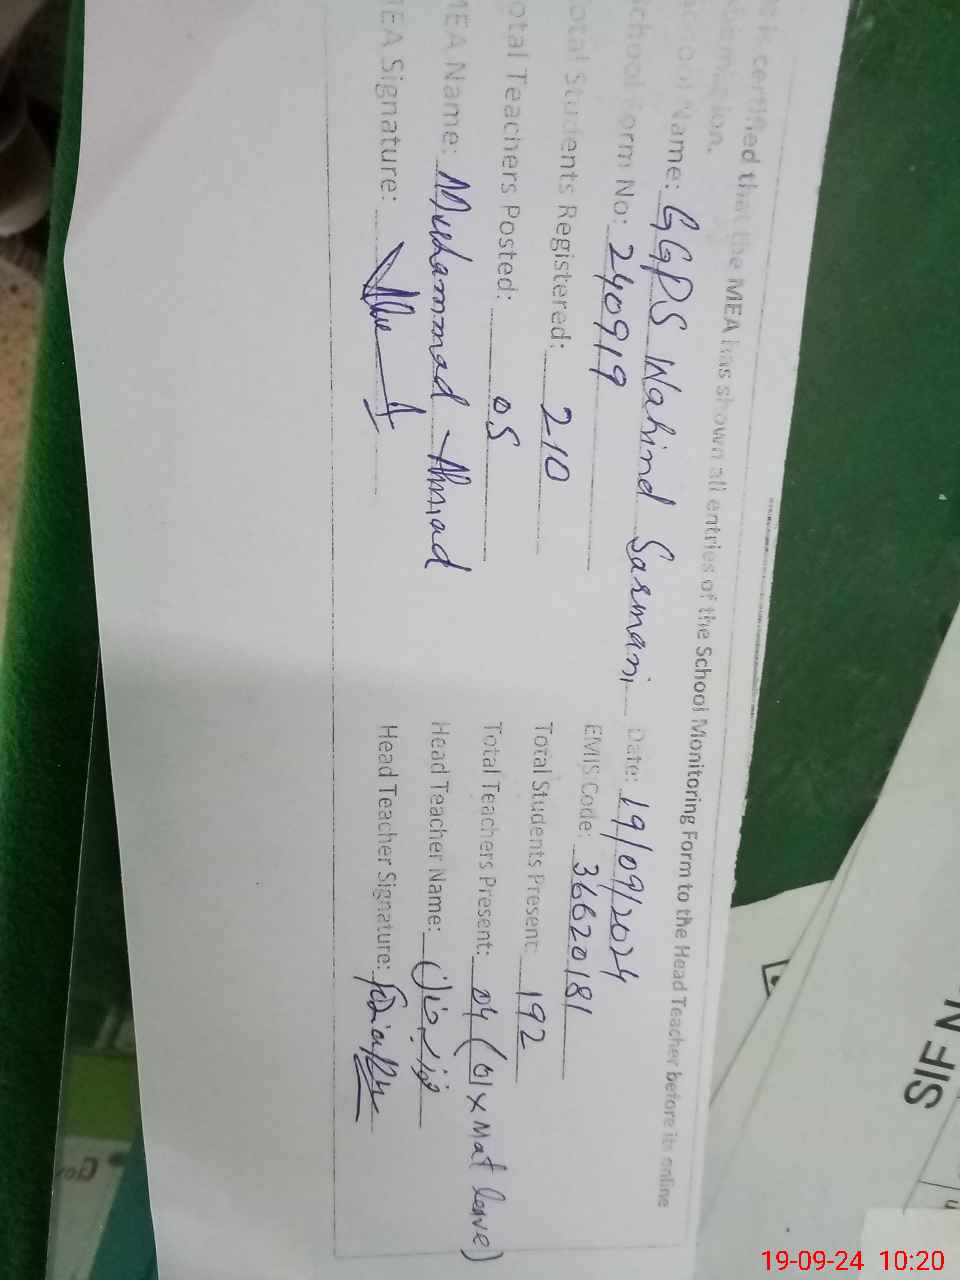 certified that the MEA has shown all entries of the School Monitoring Form to the Head Teacher before its online
Name: GGPS Wahind Sarmani Date: 19/09/2024
School Form No: 240919 EMIS Code: 36620181
Total Students Registered: 210 Total Students Present: 192
Total Teachers Posted: 05 Total Teachers Present: 04 (01 x Mat leave)
MEA Name: Muhammad Ahmad Head Teacher Name:
MEA Signature: Head Teacher Signature:
SIF N
19-09-24 10:20